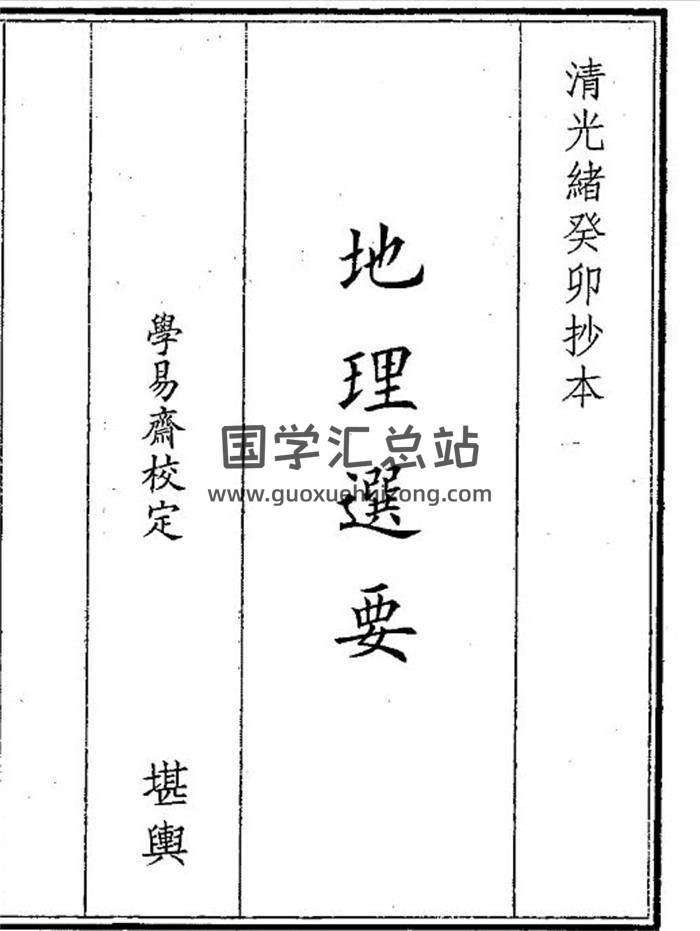 清光緒癸卯抄本
地理選要
學易齋校定
堪輿
国学汇总站
www.guoxuehuizong.com